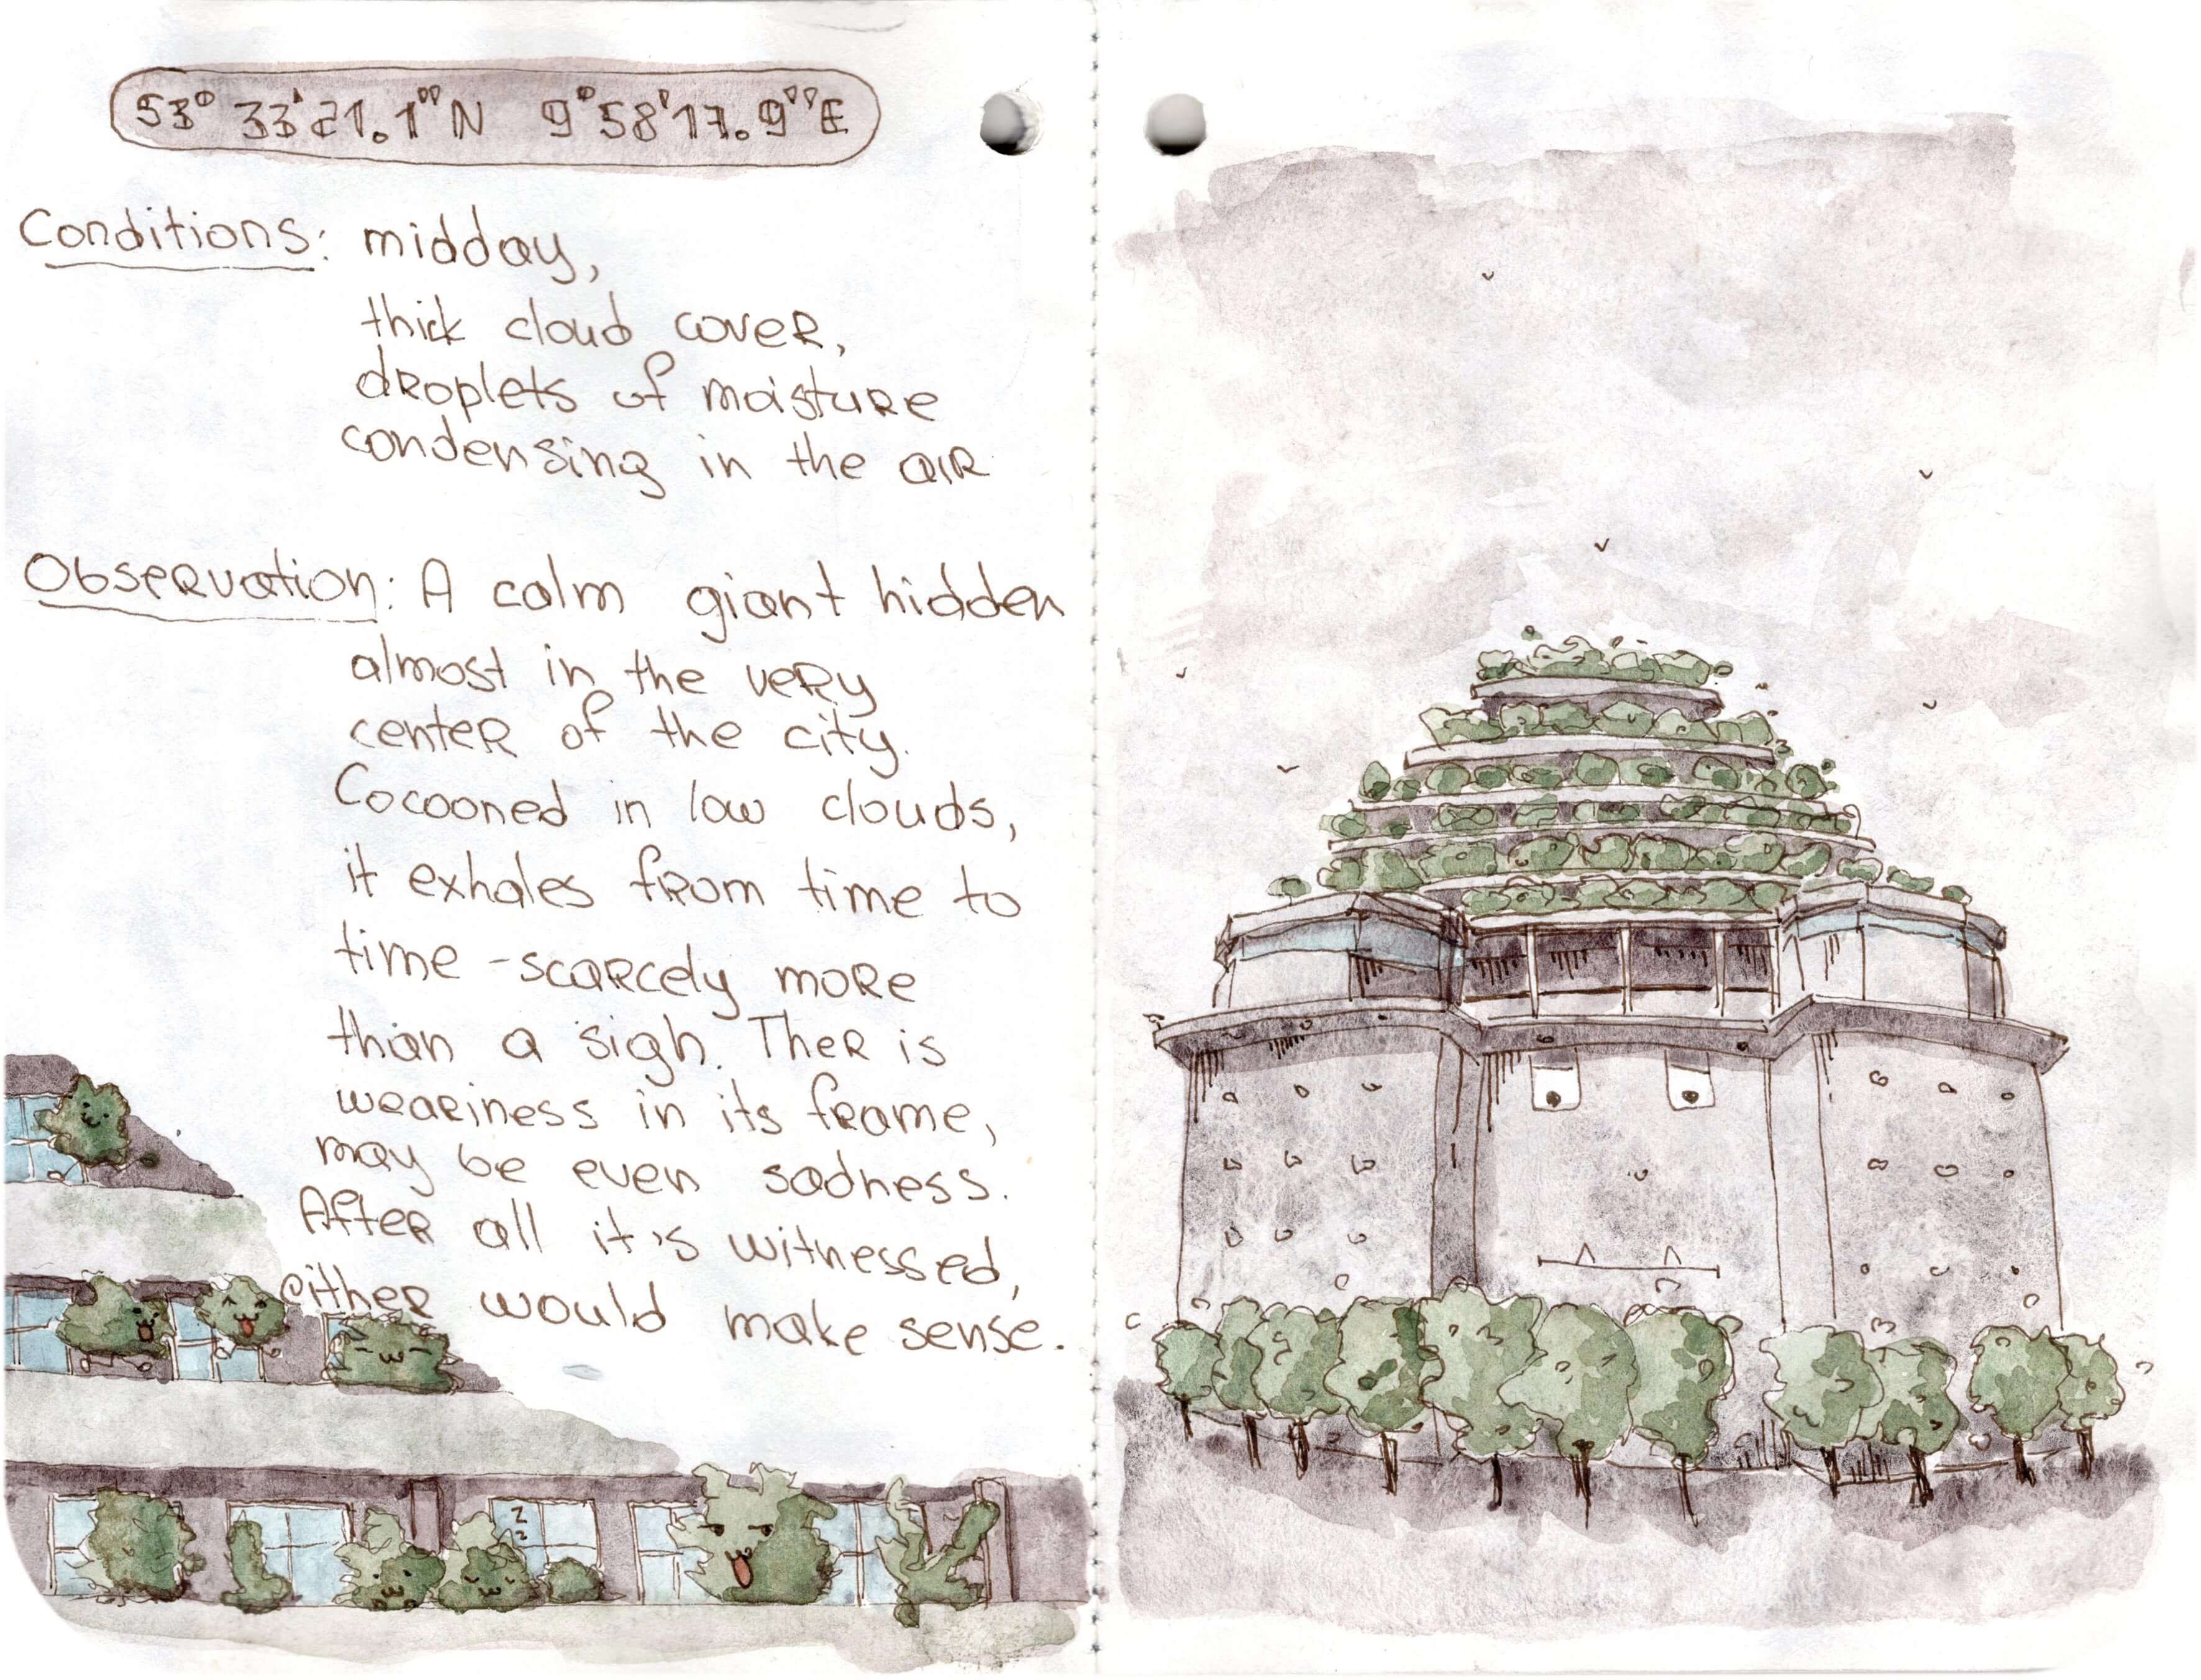 53° 33'21.1"N 9°58'17.9"E
Conditions: midday,
thick cloud cover,
droplets of moisture
condensing in the air
Observation: A calm giant hidden
almost in the very
center of the city.
Cocooned in low clouds,
it exhales from time to
time - scarcely more
than a sigh. Ther is
weariness in its frame,
may be even sadness.
After all it's witnessed,
either would make sense.
z
z